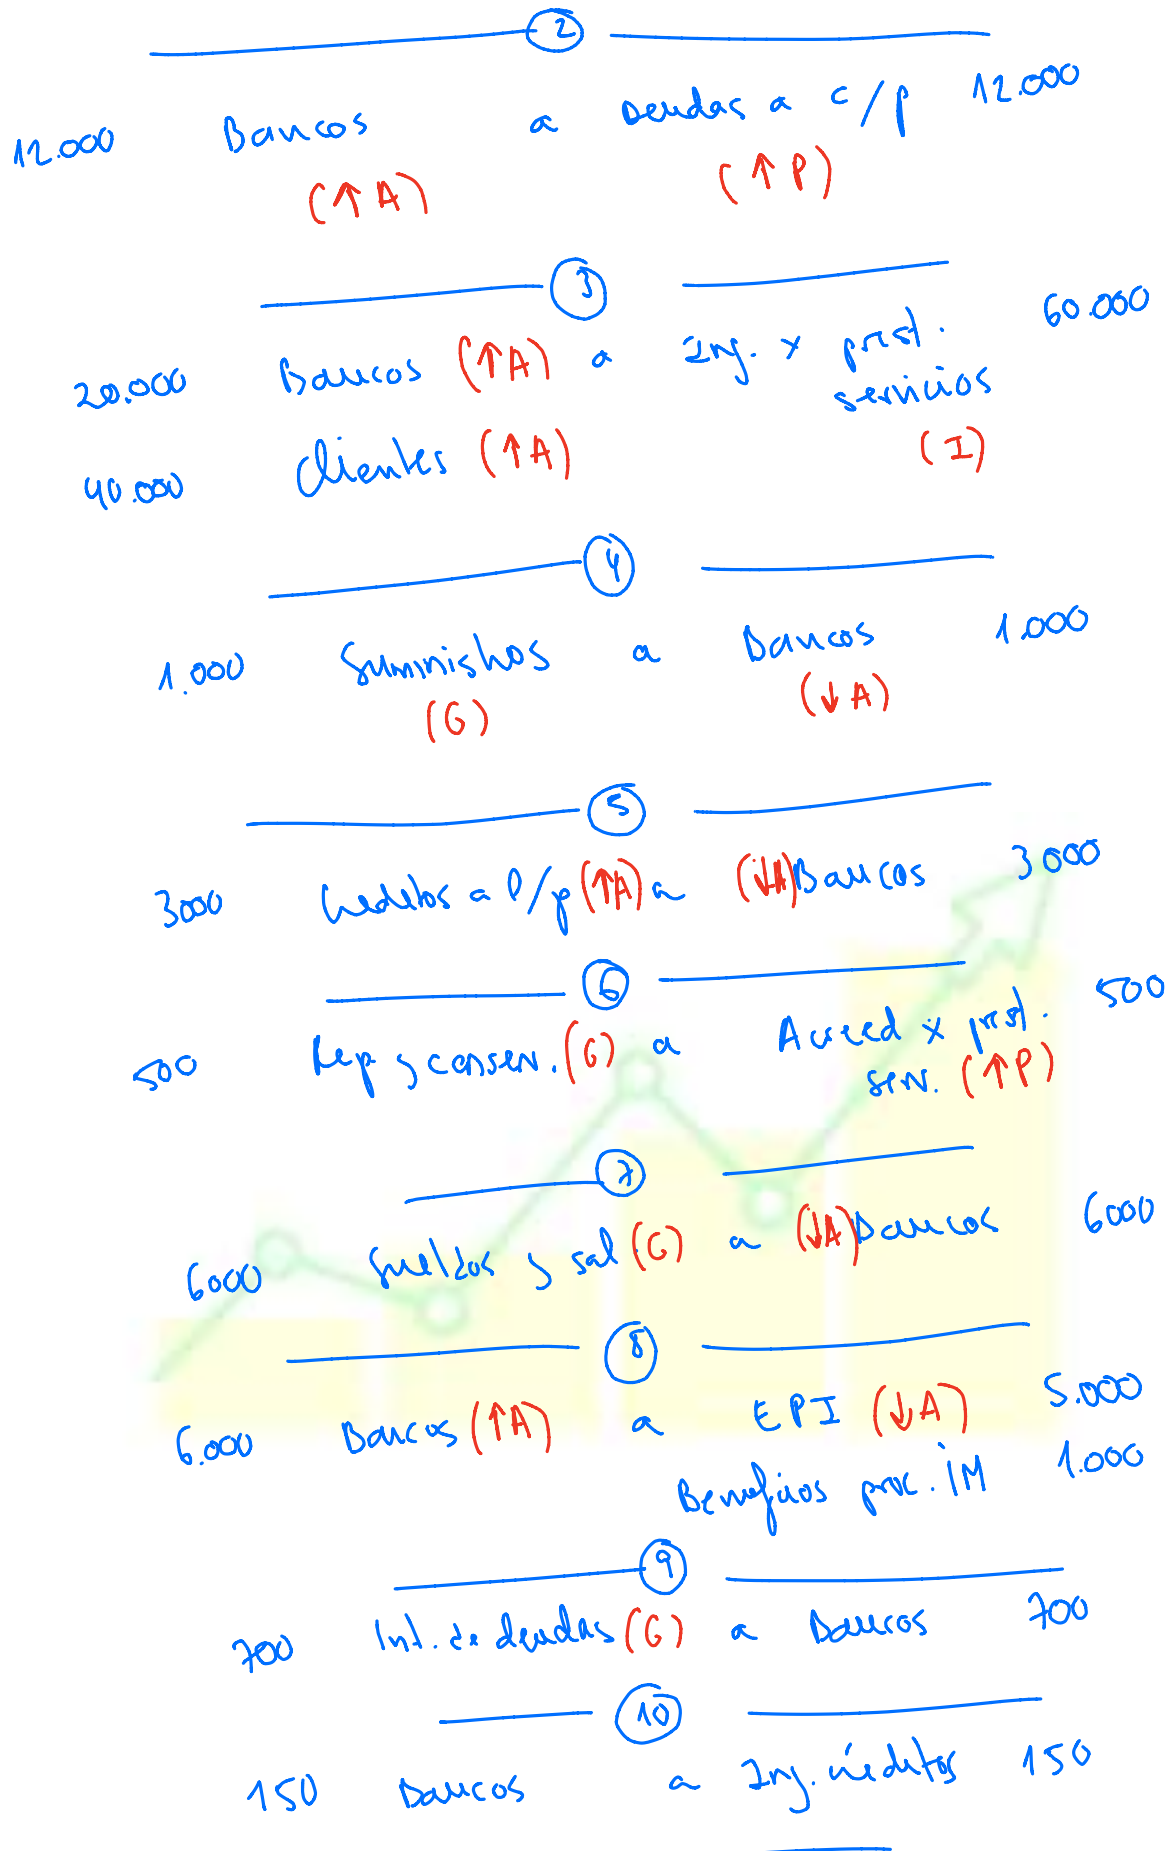 2
12.000 Bancos a Deudas a c/p 12.000
(↑A) (↑P)
3
20.000 Bancos (↑A) a Ing. x prest. 60.000
servicios
40.000 Clientes (↑A) (I)
4
1.000 Suministros a Bancos 1.000
(G) (↓A)
5
3000 Creditos a l/p (↑A) a (↓A) Bancos 3000
6
500 Rep y conser. (G) a Acreed x prest. 500
serv. (↑P)
7
6000 Sueldos y sal (G) a (↓A) Bancos 6000
8
6.000 Bancos (↑A) a EPI (↓A) 5.000
Beneficios proc. iM 1.000
9
700 Int. de deudas (G) a Bancos 700
10
150 Bancos a Ing. créditos 150